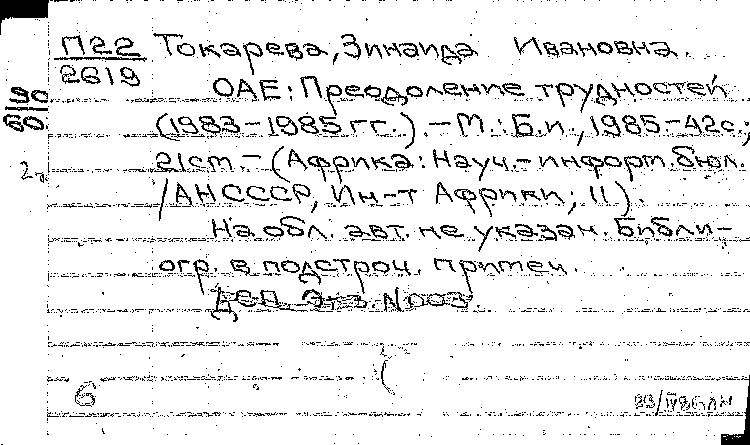 П22
2619
Токарева, Зинаида Ивановна.
ОАЕ: Преодоление трудностей
(1983-1985 гг.). - М.: Б.и., 1985.-42с.;
21ст. - (Африка: Науч.-информ. бюл.
/АН СССР, Ин-т Африки; 11).
На обл. авт. не указан. Библи-
огр. в подстроч. примеч.
90
60
2
6